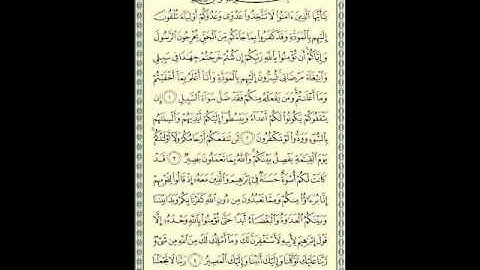 يَٰٓأَيُّهَا ٱلَّذِينَ ءَامَنُوا۟ لَا تَتَّخِذُوا۟ عَدُوِّى وَعَدُوَّكُمْ أَوْلِيَآءَ تُلْقُونَ
إِلَيْهِم بِٱلْمَوَدَّةِ وَقَدْ كَفَرُوا۟ بِمَا جَآءَكُم مِّنَ ٱلْحَقِّ يُخْرِجُونَ ٱلرَّسُولَ
وَإِيَّاكُمْ أَن تُؤْمِنُوا۟ بِٱللَّهِ رَبِّكُمْ إِن كُنتُمْ خَرَجْتُمْ جِهَٰدًا فِى سَبِيلِى
وَٱبْتِغَآءَ مَرْضَاتِى تُسِرُّونَ إِلَيْهِم بِٱلْمَوَدَّةِ وَأَنَا۠ أَعْلَمُ بِمَآ أَخْفَيْتُمْ
وَمَآ أَعْلَنتُمْ وَمَن يَفْعَلْهُ مِنكُمْ فَقَدْ ضَلَّ سَوَآءَ ٱلسَّبِيلِ ١ إِن
يَثْقَفُوكُمْ يَكُونُوا۟ لَكُمْ أَعْدَآءً وَيَبْسُطُوٓا۟ إِلَيْكُمْ أَيْدِيَهُمْ وَأَلْسِنَتَهُم
بِٱلسُّوٓءِ وَوَدُّوا۟ لَوْ تَكْفُرُونَ ٢ لَن تَنفَعَكُمْ أَرْحَامُكُمْ وَلَآ أَوْلَٰدُكُمْ
يَوْمَ ٱلْقِيَٰمَةِ يَفْصِلُ بَيْنَكُمْ وَٱللَّهُ بِمَا تَعْمَلُونَ بَصِيرٌ ٣ قَدْ
كَانَتْ لَكُمْ أُسْوَةٌ حَسَنَةٌ فِىٓ إِبْرَٰهِيمَ وَٱلَّذِينَ مَعَهُۥٓ إِذْ قَالُوا۟ لِقَوْمِهِمْ
إِنَّا بُرَءَٰٓؤُا۟ مِنكُمْ وَمِمَّا تَعْبُدُونَ مِن دُونِ ٱللَّهِ كَفَرْنَا بِكُمْ وَبَدَا بَيْنَنَا
وَبَيْنَكُمُ ٱلْعَدَٰوَةُ وَٱلْبَغْضَآءُ أَبَدًا حَتَّىٰ تُؤْمِنُوا۟ بِٱللَّهِ وَحْدَهُۥٓ إِلَّا
قَوْلَ إِبْرَٰهِيمَ لِأَبِيهِ لَأَسْتَغْفِرَنَّ لَكَ وَمَآ أَمْلِكُ لَكَ مِنَ ٱللَّهِ مِن شَىْءٍ
رَّبَّنَا عَلَيْكَ تَوَكَّلْنَا وَإِلَيْكَ أَنَبْنَا وَإِلَيْكَ ٱلْمَصِيرُ ٤ رَبَّنَا لَا تَجْعَلْنَا